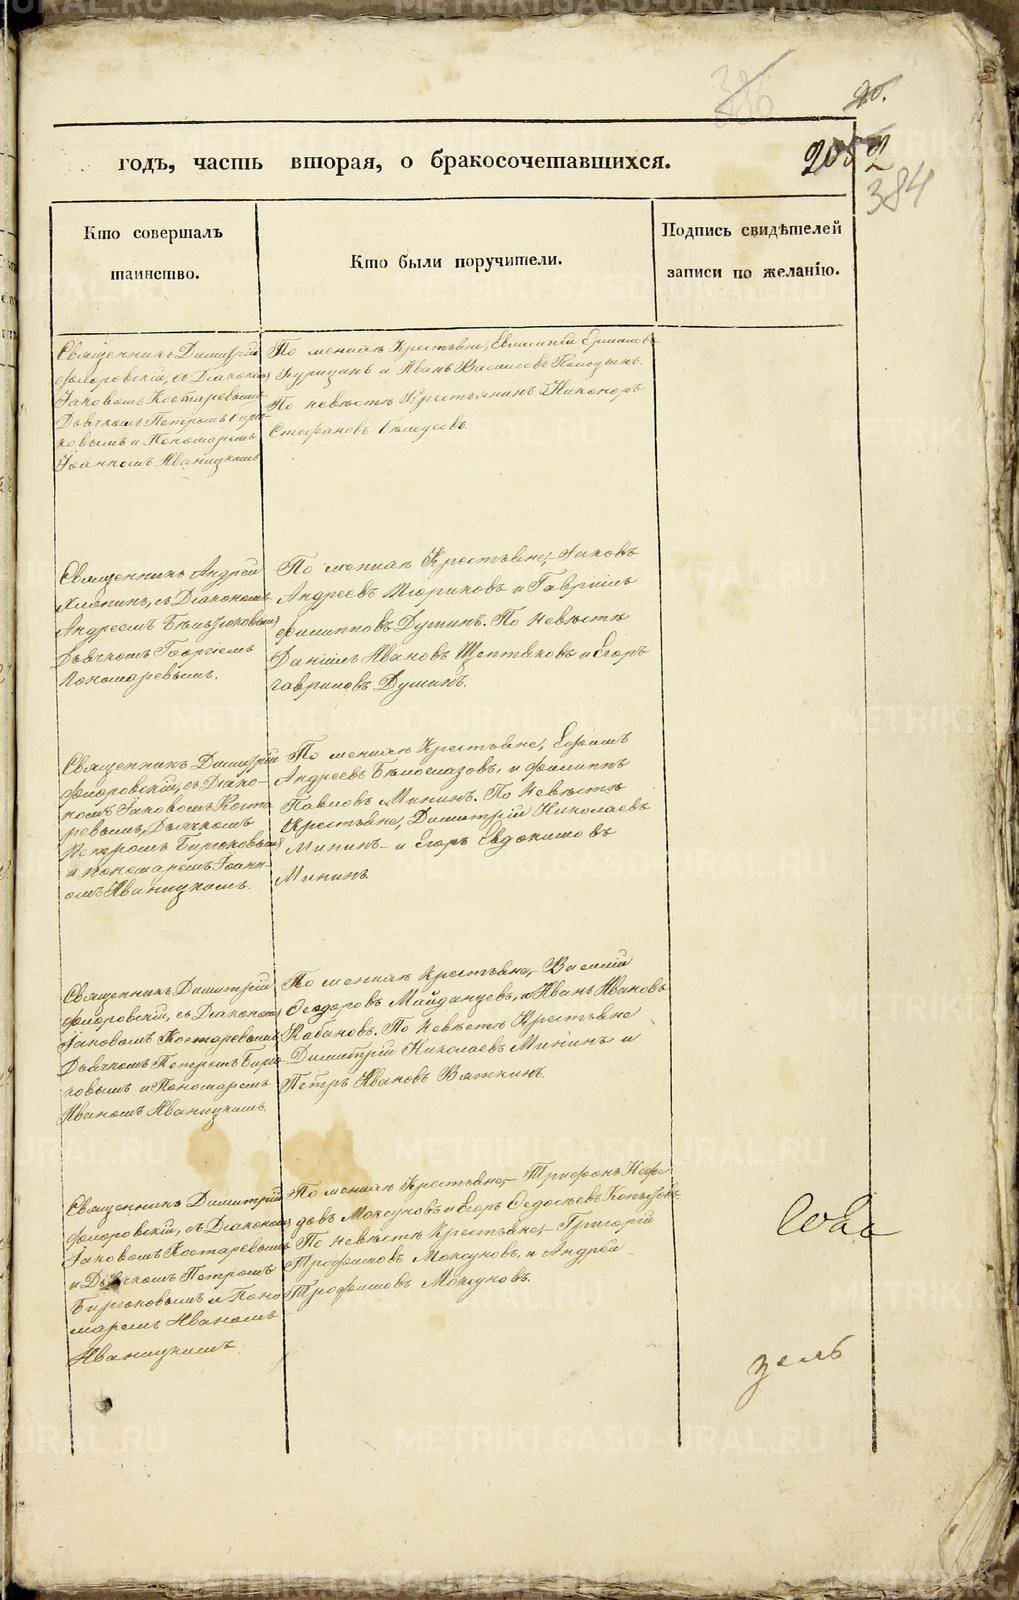 386
20.
годъ, часть вторая, о бракосочетавшихся.
205 2
384
Кто совершалъ
таинство.
Кто были поручители.
Подпись свидѣтелей
записи по желанію.
Священникъ Димитрій
Флоровскій, съ Діакономъ
Іаковомъ Костаревымъ
Дьячкомъ Петромъ Бирю-
ковымъ и Пономаремъ
Іоанномъ Иваницкимъ
По женихѣ Крестьяне,
Курицынъ и Иванъ Васильевъ
По невѣстѣ Крестьянинъ Никаноръ
Стефановъ Бѣлоусовъ.
Священникъ Андрей
съ Діакономъ
Андреемъ
Дьячкомъ Георгіемъ
Пономаревымъ.
По женихѣ Крестьяне, Іаковъ
Андреевъ и Гавріилъ
Филипповъ Душинъ. По невѣстѣ
Даніилъ Ивановъ и Егоръ
Гавриловъ Душинъ.
Священникъ Димитрій
Флоровскій, съ Діако-
номъ Іаковомъ Коста
ревымъ, Дьячкомъ
Петромъ Бирюковымъ
и Пономаремъ Іоанн-
омъ Иваницкимъ.
По женихѣ Крестьяне, Ефимъ
Андреевъ Бѣлоглазовъ, и Филиппъ
Павловъ Мининъ. По невѣстѣ
Крестьяне, Димитрій Николаевъ
Мининъ и Егоръ Евдокимовъ
Мининъ
Священникъ Димитрій
Флоровскій, съ Діакономъ
Іаковомъ Костаревымъ
Дьячкомъ Петромъ Бирю-
ковымъ и Пономаремъ
Иваномъ Иваницкимъ.
По женихѣ Крестьяне, Василій
Ѳеодоровъ Майданцевъ, и Иванъ Ивановъ
Кабановъ. По невѣстѣ Крестьяне
Димитрій Николаевъ Мининъ и
Петръ Ивановъ Вяткинъ.
Священникъ Димитрій
Флоровскій, съ Діакономъ
Іаковомъ Костаревымъ
и Дьячкомъ Петромъ
Бирюковымъ и Поно
маремъ Иваномъ
Иваницкимъ.
По женихѣ Крестьяне, Трифонъ
Моксуновъ и Егоръ Ѳедосѣевъ
По невѣстѣ Крестьяне, Григорій
Трофимовъ Моксуновъ, и Андрей
Трофимовъ Моксуновъ.
METRIKI.GASO-URAL.RU